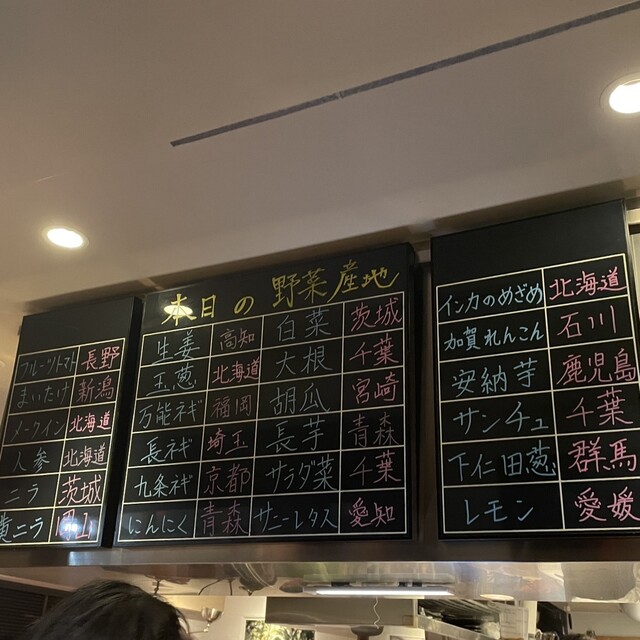 フルーツトマト 長野
まいたけ 新潟
メークイン 北海道
人参 北海道
ニラ 茨城
黄ニラ 岡山
本日の野菜産地
生姜 高知 白菜 茨城
玉葱 北海道 大根 千葉
万能ネギ 福岡 胡瓜 宮崎
長ネギ 埼玉 長芋 青森
九条ネギ 京都 サラダ菜 千葉
にんにく 青森 サニーレタス 愛知
インカのめざめ 北海道
加賀れんこん 石川
安納芋 鹿児島
サンチュ 千葉
下仁田葱 群馬
レモン 愛媛